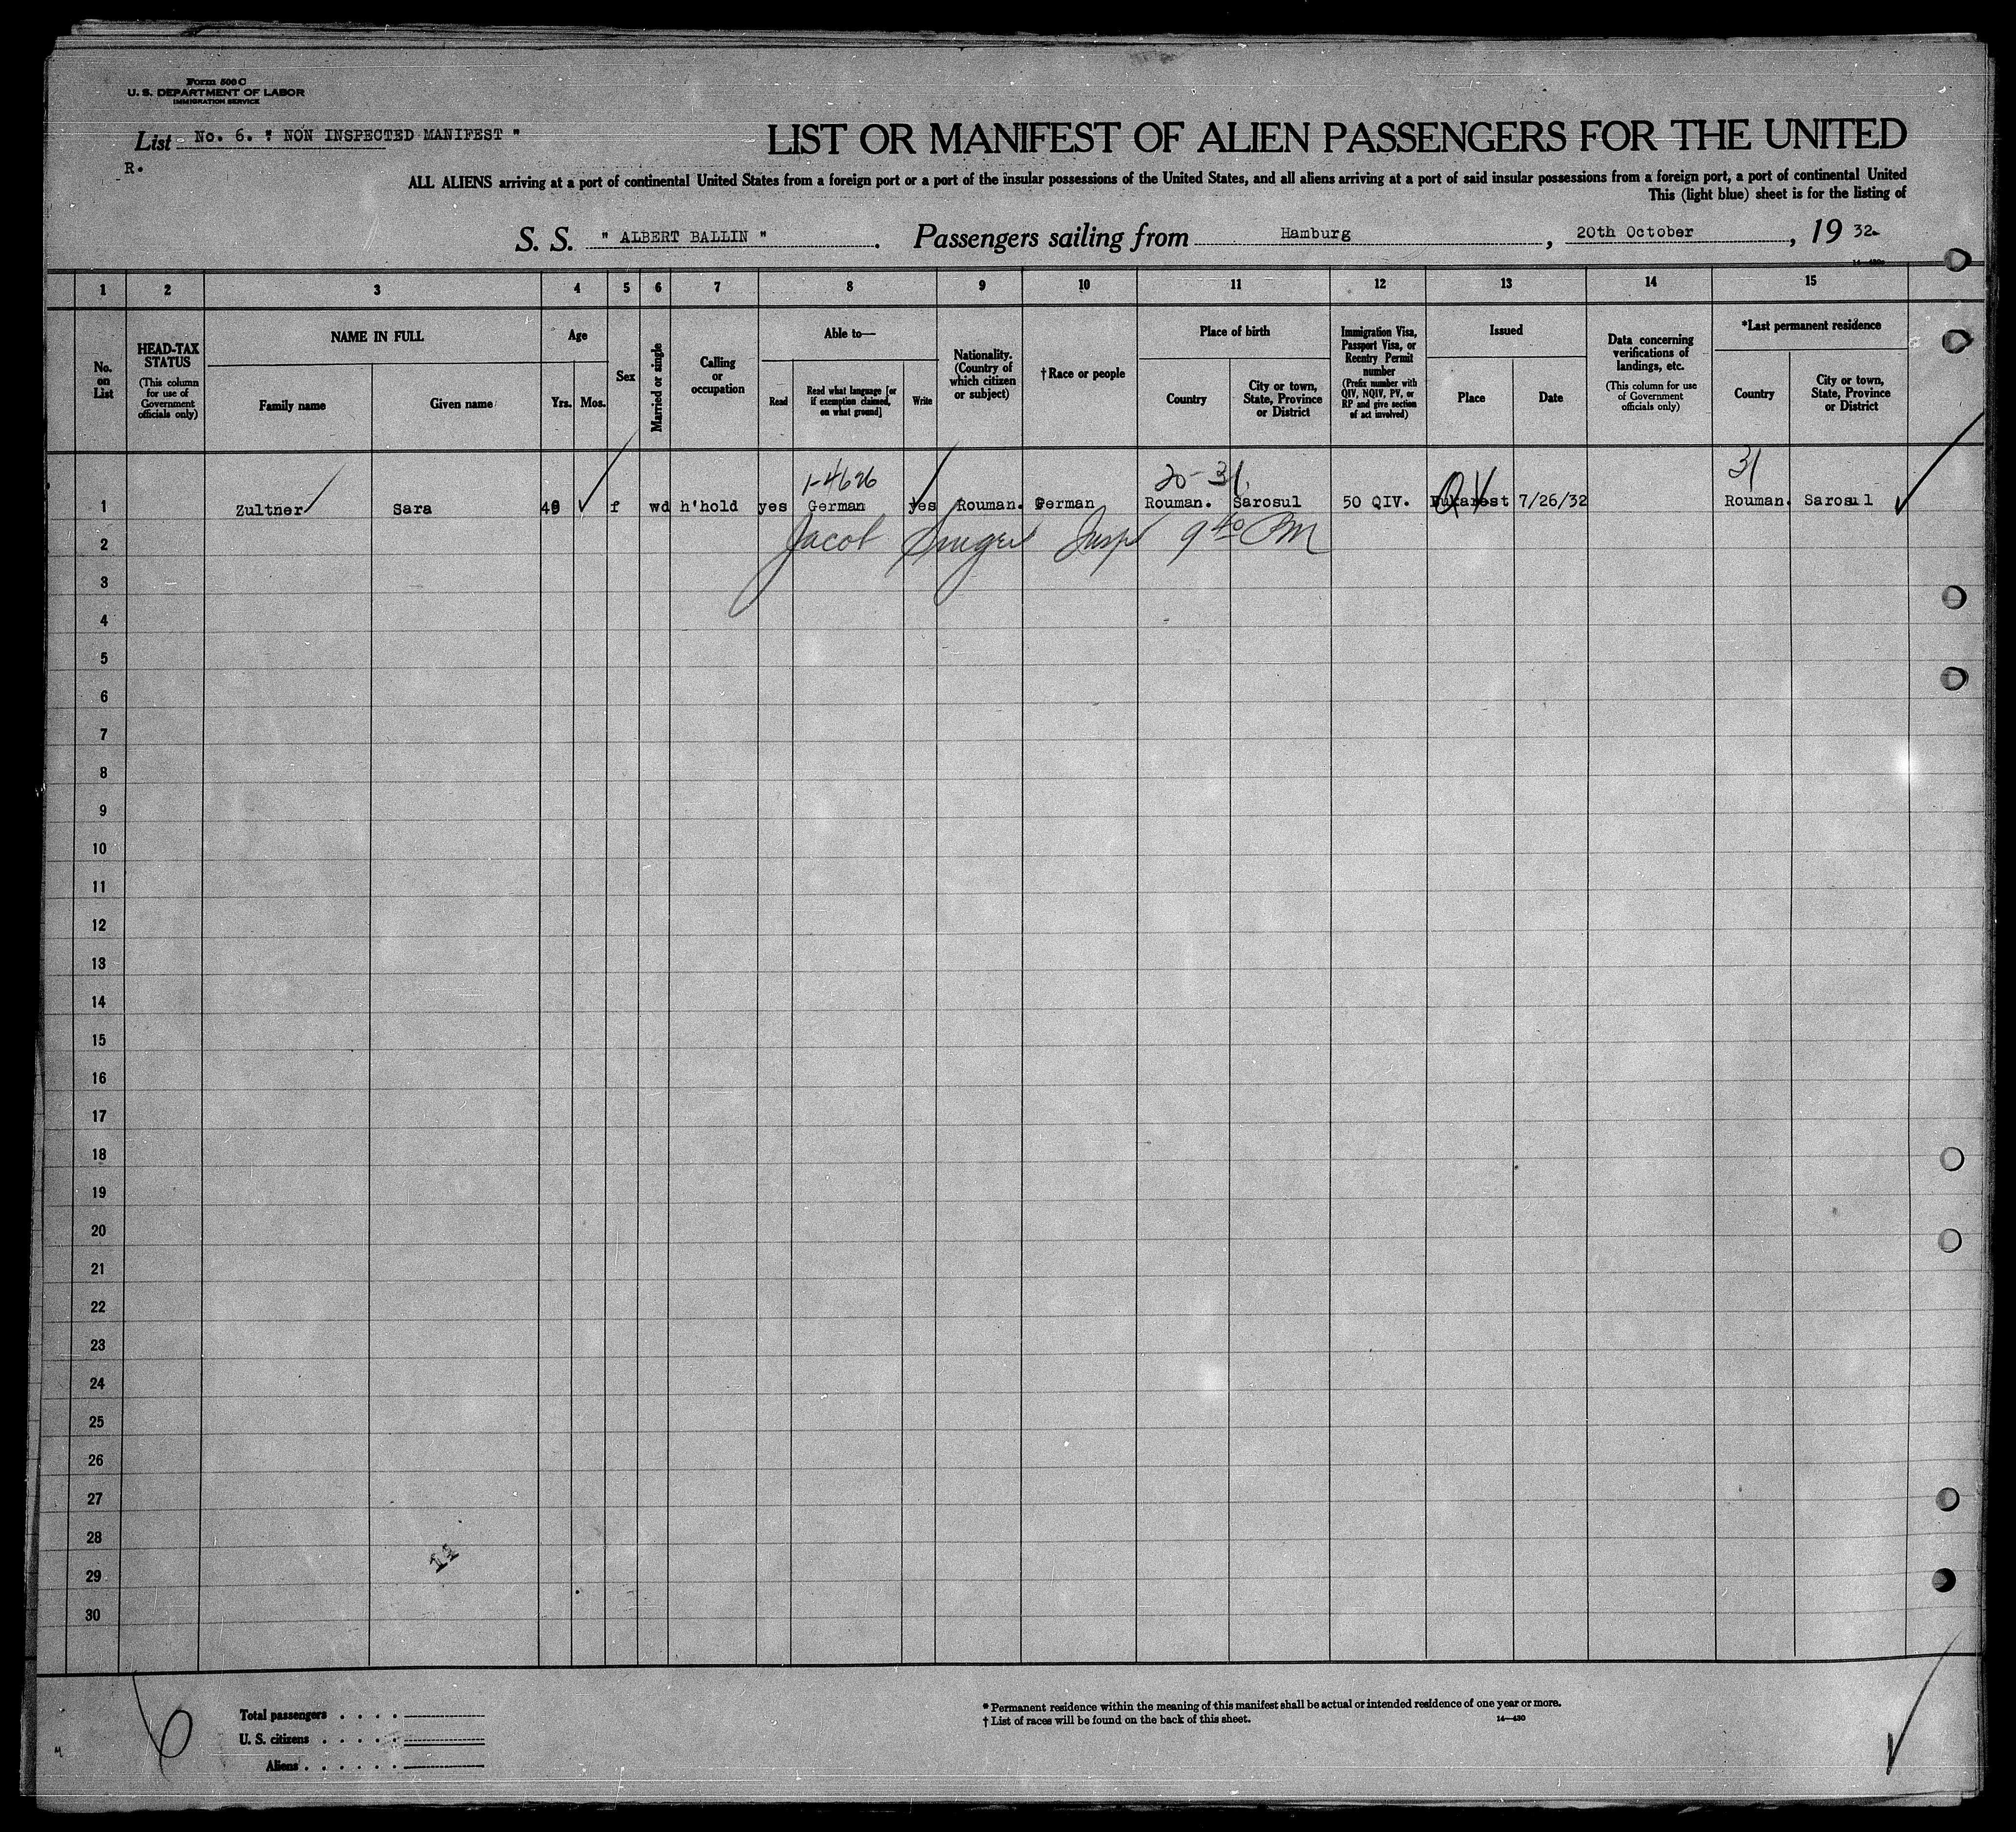 Form 500 C
U. S. DEPARTMENT OF LABOR
IMMIGRATION SERVICE
List No. 6. " NON INSPECTED MANIFEST "
R.
LIST OR MANIFEST OF ALIEN PASSENGERS FOR THE UNITED
ALL ALIENS arriving at a port of continental United States from a foreign port or a port of the insular possessions of the United States, and all aliens arriving at a port of said insular possessions from a foreign port, a port of continental United
This (light blue) sheet is for the listing of
S. S. " ALBERT BALLIN " . Passengers sailing from Hamburg , 20th October , 19 32.
1 2 3 4 5 6 7 8 9 10 11 12 13 14 15
No. on List
HEAD-TAX STATUS
(This column for use of Government officials only)
NAME IN FULL
Family name
Given name
Age
Yrs.
Mos.
Sex
Married or single
Calling or occupation
Able to—
Read
Read what language [or if exemption claimed, on what ground]
Write
Nationality. (Country of which citizen or subject)
† Race or people
Place of birth
Country
City or town, State, Province or District
Immigration Visa, Passport Visa, or Reentry Permit number
(Prefix number with QIV, NQIV, PV, or RP and give section of act involved)
Issued
Place
Date
Data concerning verifications of landings, etc.
(This column for use of Government officials only)
*Last permanent residence
Country
City or town, State, Province or District
1-4626 20-31 31
1 Zultner Sara f wd h'hold yes German yes Rouman. German Rouman. Sarosul 50 QIV. Bukarest 7/26/32 Rouman. Sarosul
Jacob Singer Insp 9 40 PM
2
3
4
5
6
7
8
9
10
11
12
13
14
15
16
17
18
19
20
21
22
23
24
25
26
27
28
29
30
6
Total passengers
U. S. citizens
Aliens
* Permanent residence within the meaning of this manifest shall be actual or intended residence of one year or more.
† List of races will be found on the back of this sheet.
14—430